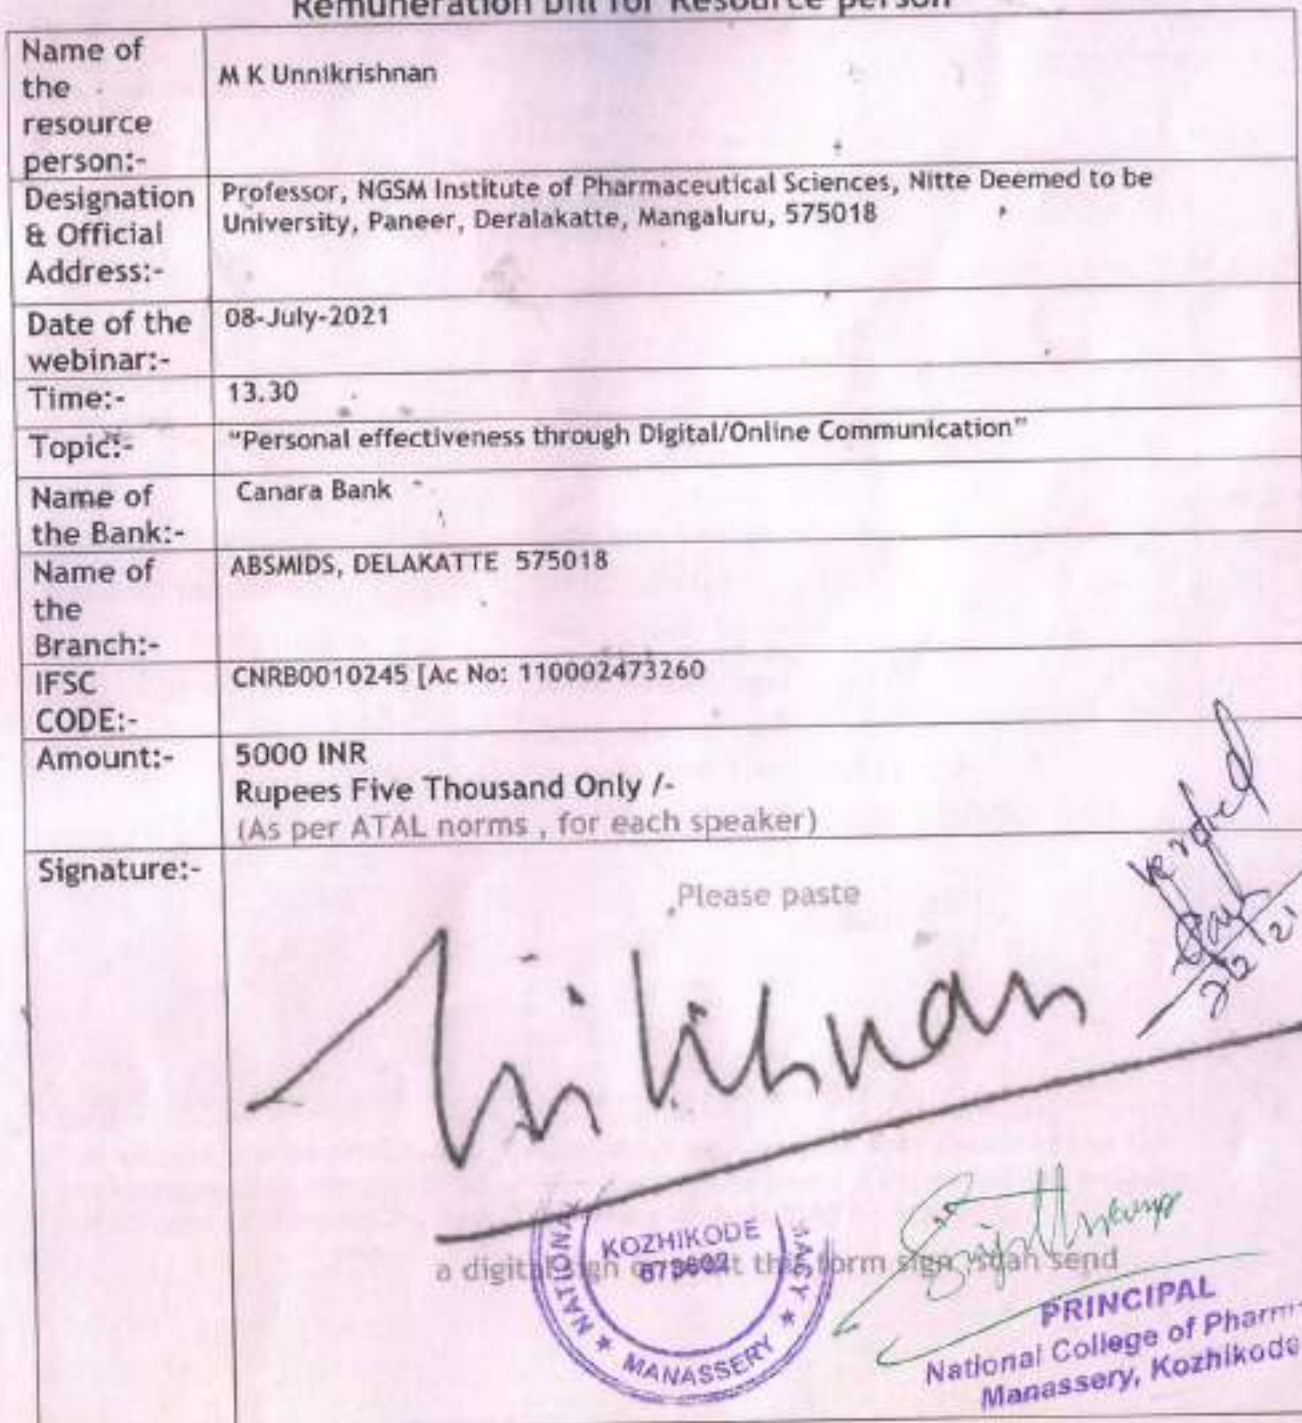 Remuneration Bill for Resource person
Name of
the
resource
person:-
M K Unnikrishnan
Designation
& Official
Address:-
Professor, NGSM Institute of Pharmaceutical Sciences, Nitte Deemed to be
University, Paneer, Deralakatte, Mangaluru, 575018
Date of the
webinar:-
08-July-2021
Time:-
13.30
Topic:-
"Personal effectiveness through Digital/Online Communication"
Name of
the Bank:-
Canara Bank
Name of
the
Branch:-
ABSMIDS, DELAKATTE 575018
IFSC
CODE:-
CNRB0010245 [Ac No: 110002473260
Amount:-
5000 INR
Rupees Five Thousand Only /-
(As per ATAL norms , for each speaker)
Verified
Signature:-
Please paste
a digital sign or print this form sign scan send
KOZHIKODE
673602
NATIONAL
MANASSERY
PRINCIPAL
National College of Pharm
Manassery, Kozhikode